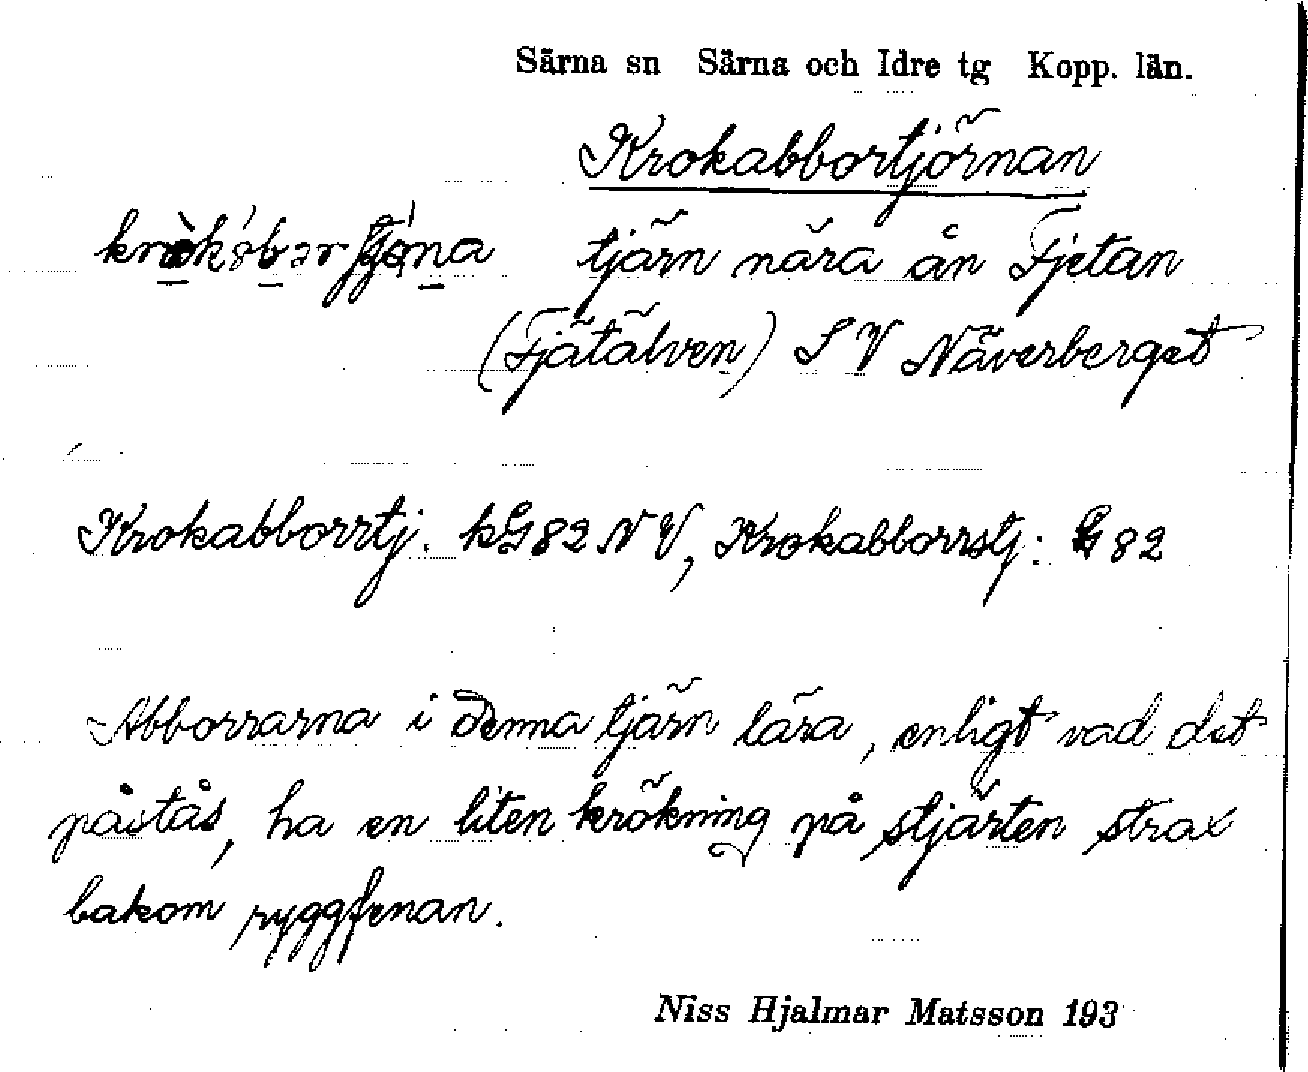 Särna sn Särna och Idre tg Kopp. län.
Krokabbortjörnan
tjärn nära ån Fjetan
(Fjätälven) SV Näverberget
Krokabborrtj. kG82NV, Krokabborrstj: G82
Abborrarna i denna tjärn lära, enligt vad det
påstås, ha en liten krökning på stjärten strax
bakom ryggfenan.
Niss Hjalmar Matsson 193